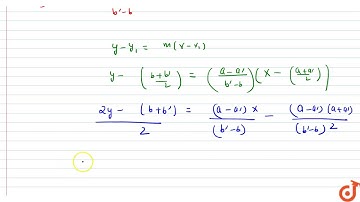 b'-b
y-y₁ = m(x-x₁)
y- (b+b'/2) = (a-a'/b'-b)(x - (a+a'/2))
2y - (b+b')/2 = (a-a')x/(b'-b) - (a-a')(a+a')/(b'-b)2